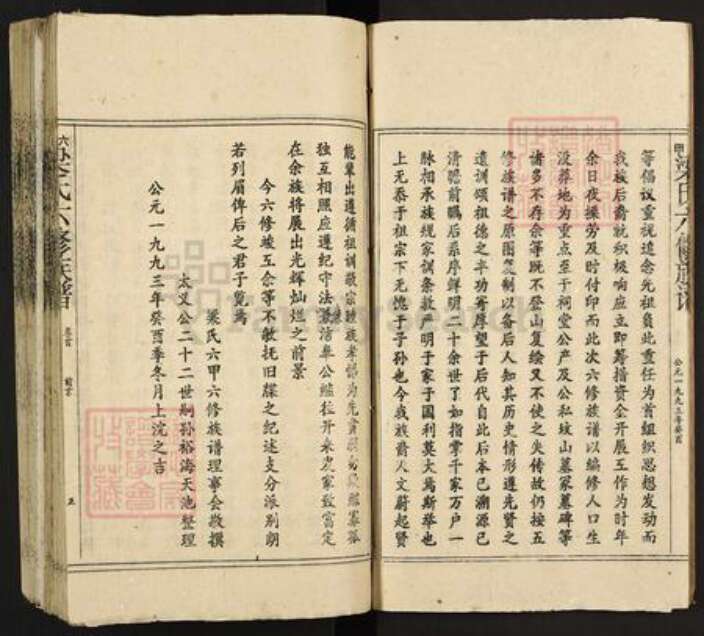 等倡议重视追念先祖负此重任为首组织思想发动而
我族后裔就积极响应立即筹措资金开展工作为时年
余日夜操劳及时付印而此次六修族谱以编修人口生
没葬地为重点至于祠堂公产及公私坟山墓冢墓碑等
诸多不存余等既不登山复绘又不使之失传故仍按五
修族谱之原图复制以备后人知其历史情形遵先贤之
遗训颂祖德之丰功寄厚望于后代自此后本已溯源已
清聪前瞩后系序鲜明二十余世了如指掌千家万户一
脉相承族规家训条教严明于家于国利莫大焉斯举也
上无忝于祖宗下无愧于子孙也今我族裔人文蔚起贤
公元一九九三年癸酉
能辈出遵循祖训敬宗睦族孝悌为先
独互相照应遵纪守法 公 拉开来 农家致富定
在余族将展出光辉灿烂之前景
今六修竣工余等不敏抚旧牒之纪述支分派别朗
若列眉俾后之君子览焉
梁氏六甲六修族谱理事会敬撰
太义公二十二世嗣孙裕海天池整理
公元一九九三年癸酉季冬月上浣之吉
卷首
五